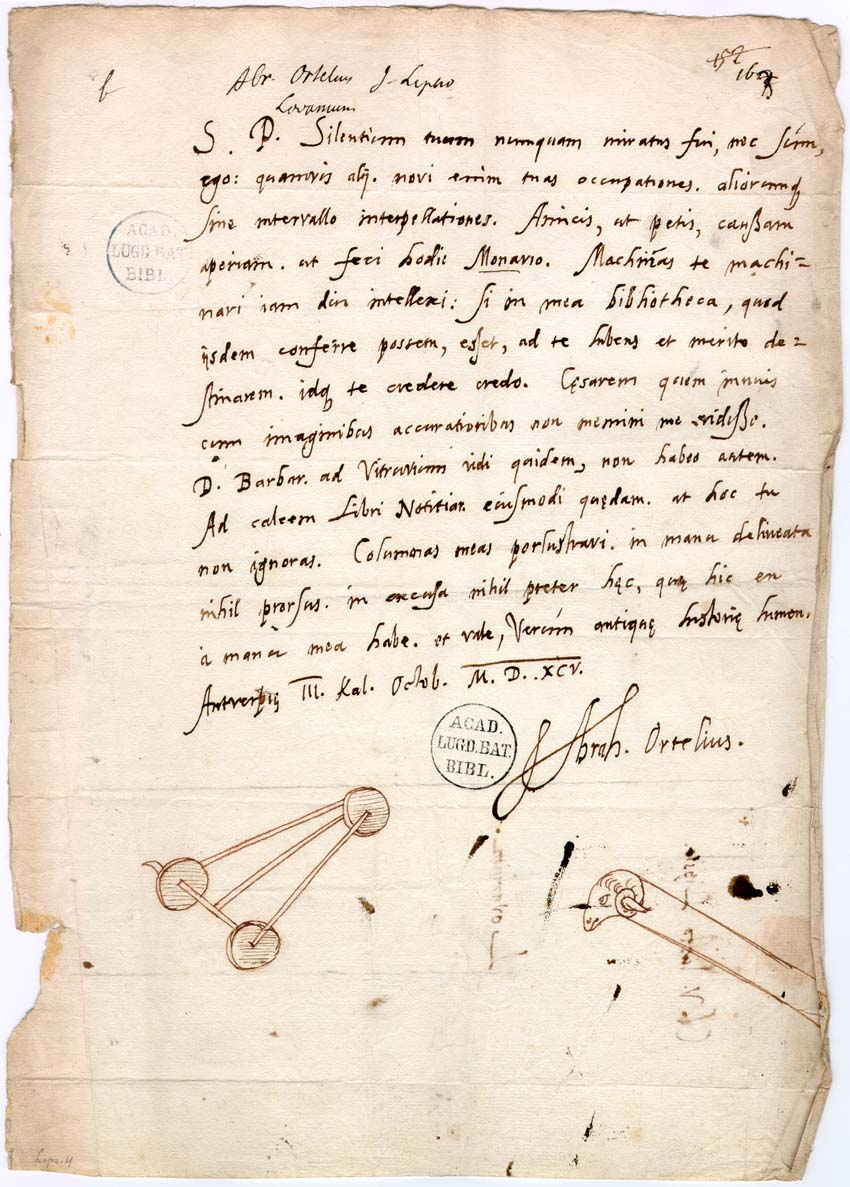 Abr. Ortelius J. Lipsio
Lovanium
S. P. Silentium tuum nunquam miratus fui, nec sum,
ego: quamvis alij. novi enim tuas occupationes. aliorumq
sine intervallo interpellationes. Amicis, ut petis, caußam
aperiam. ut feci hodie Monavio. Machinas te machi=
nari iam diu intellexi: si in mea bibliotheca, quod
ijsdem conferre possem, esset, ad te lubens et merito de=
stinarem. idq te credere credo. Cęsarem quem innuis
cum imaginibus accuratioribus non memini me vidiße.
D. Barbar. ad Vitruvium vidi quidem, non habeo autem.
Ad calcem Libri Notitiar. eiusmodi quędam. at hoc tu
non ignoras. Columnas meas perlustravi. in manu delineata
nihil prorsus. in excusa nihil preter hęc, quę hic en
à manu mea habe. et vale, Verum antiquę historię lumen.
Antverpię III. Kal. Octob. M. D. XCV.
Abrah. Ortelius.
ACAD.
LUGD. BAT.
BIBL.
ACAD.
LUGD. BAT.
BIBL.
Lips. 4